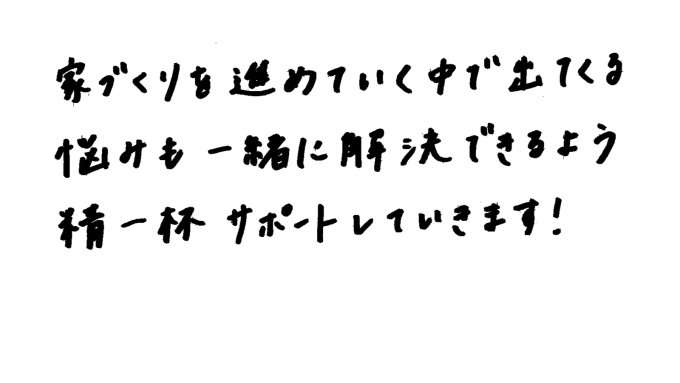 家づくりを進めていく中で出てくる
悩みも一緒に解決できるよう
精一杯サポートしていきます!